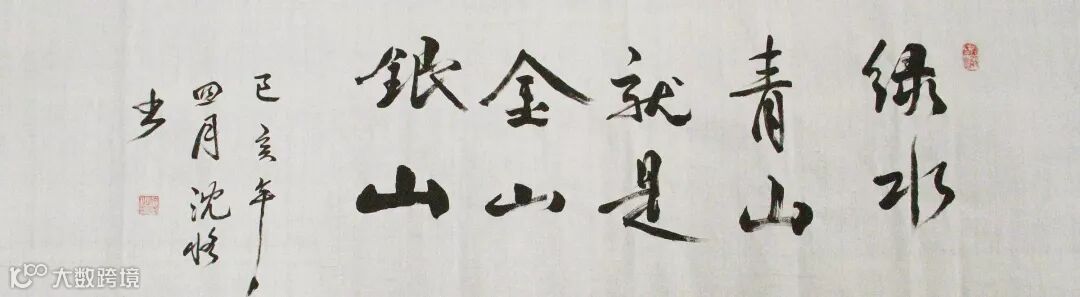 绿水
青山
就是
金山
銀山
己亥年
四月 沈
书
大数跨境